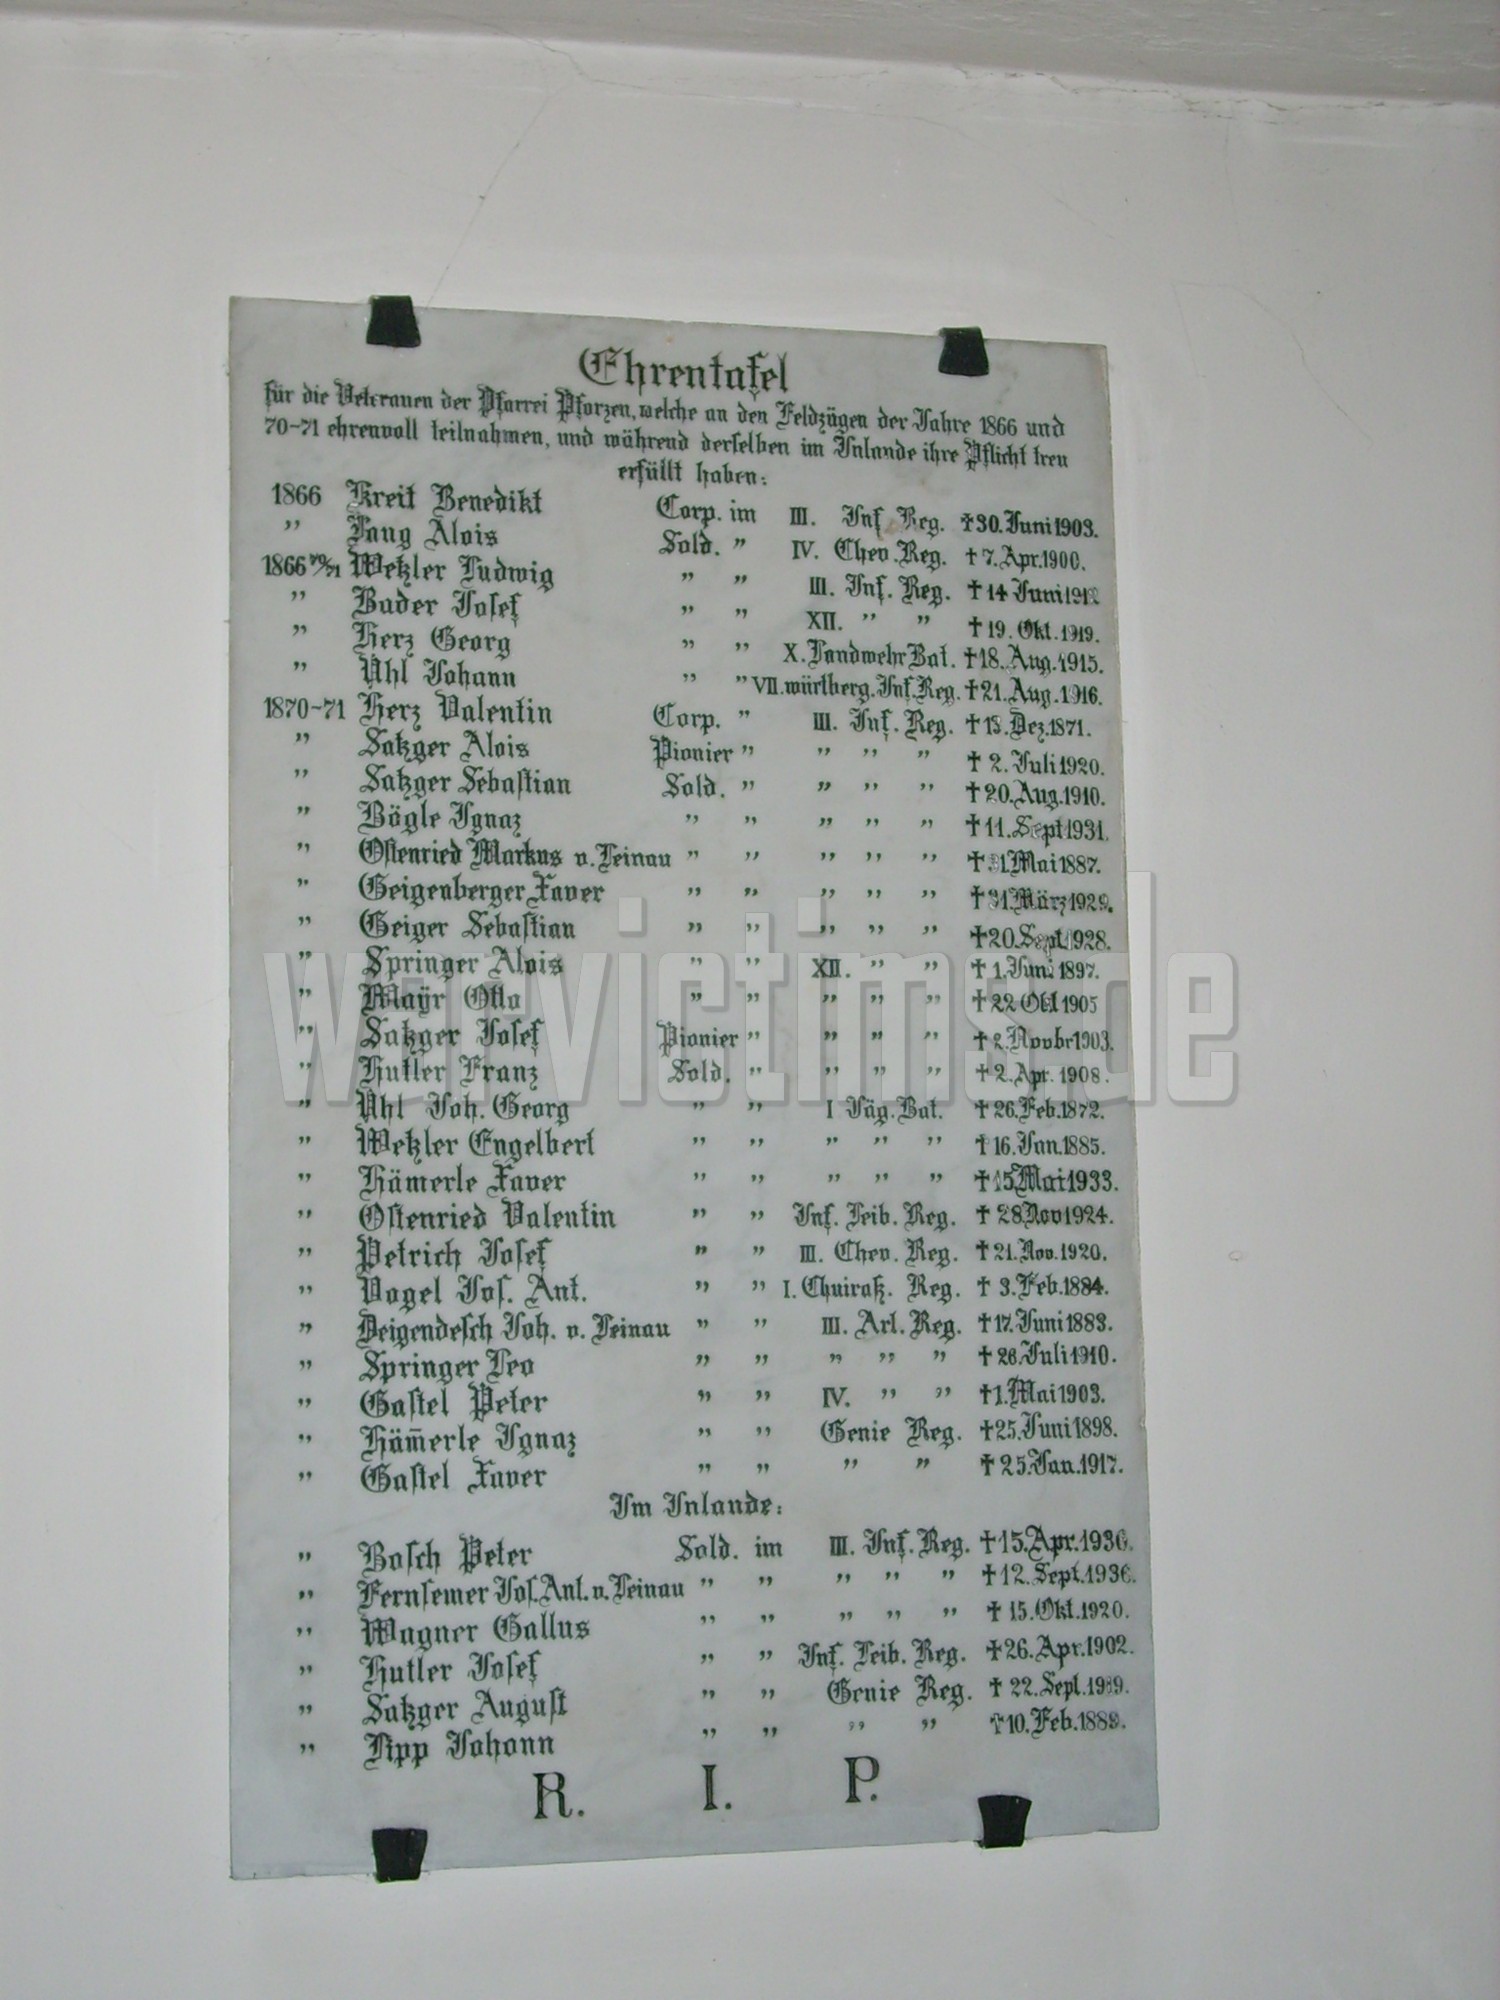 Ehrentafel
für die Veteranen der Pfarrei Pforzen, welche an den Feldzügen der Jahre 1866 und
70-71 ehrenvoll teilnahmen, und während derselben im Inlande ihre Pflicht treu
erfüllt haben:
1866 Kreit Benedikt Corp. im III. Inf. Reg. † 30. Juni 1903.
" Lang Alois Sold. " IV. Chev. Reg. † 7. Apr. 1900.
1866 70/71 Wetzler Ludwig " " III. Inf. Reg. † 14 Juni
" Bader Josef " " XII. " " † 19. Okt. 1919.
" Herz Georg " " X. Landwehr Bat. † 18. Aug. 1915.
" Uhl Johann " " VII. württberg. Inf. Reg. † 21. Aug. 1916.
1870-71 Herz Valentin Corp. " III. Inf. Reg. † Dez. 1871.
" Satzger Alois Pionier " " " " † 2. Juli 1920.
" Satzger Sebastian Sold. " " " " † 20. Aug. 1910.
" Bögle Ignaz " " " " " † 11. Sept 1931.
" Ostenried Markus v. Leinau " " " " " † 31. Mai 1887.
" Geigenberger Xaver " " " " " † 31. März 1929.
" Geiger Sebastian " " " " " † 20. Sept. 1928.
" Springer Alois " " XII. " " † 1. Juni 1897.
" Mayr Otto " " " " " † 22 Okt 1905
" Satzger Josef Pionier " " " " † 2. Novbr 1903.
" Hutler Franz Sold. " " " " † 2. Apr. 1908.
" Uhl Joh. Georg " " I Jäg. Bat. † 26. Feb. 1872.
" Wetzler Engelbert " " " " " † 16. Jan. 1885.
" Hämerle Xaver " " " " " † 15. Mai 1933.
" Ostenried Valentin " " Inf. Leib. Reg. † 28 Nov 1924.
" Petrich Josef " " III. Chev. Reg. † 21. Nov. 1920.
" Vogel Jos. Ant. " " I. Chuiraß. Reg. † 3. Feb. 1884.
" Deigendesch Joh. v. Leinau " " III. Art. Reg. † 17. Juni 1883.
" Springer Leo " " " " " † 26. Juli 1910.
" Gastel Peter " " IV. " " † 1. Mai 1903.
" Häm̄erle Ignaz " " Genie Reg. † 25. Juni 1898.
" Gastel Xaver " " " " † 25. Jan. 1917.
Im Inlande:
" Bosch Peter Sold. im III. Inf. Reg. † 15. Apr. 1930.
" Fernsemer Jos. Ant. v. Leinau " " " " " † 12. Sept. 1936.
" Wagner Gallus " " " " " † 15. Okt. 1920.
" Hutler Josef " " Inf. Leib. Reg. † 26. Apr. 1902.
" Satzger August " " Genie Reg. † 22. Sept.
" Lipp Johann " " " " † 10. Feb. 1889.
R. I. P.
warvictims.de